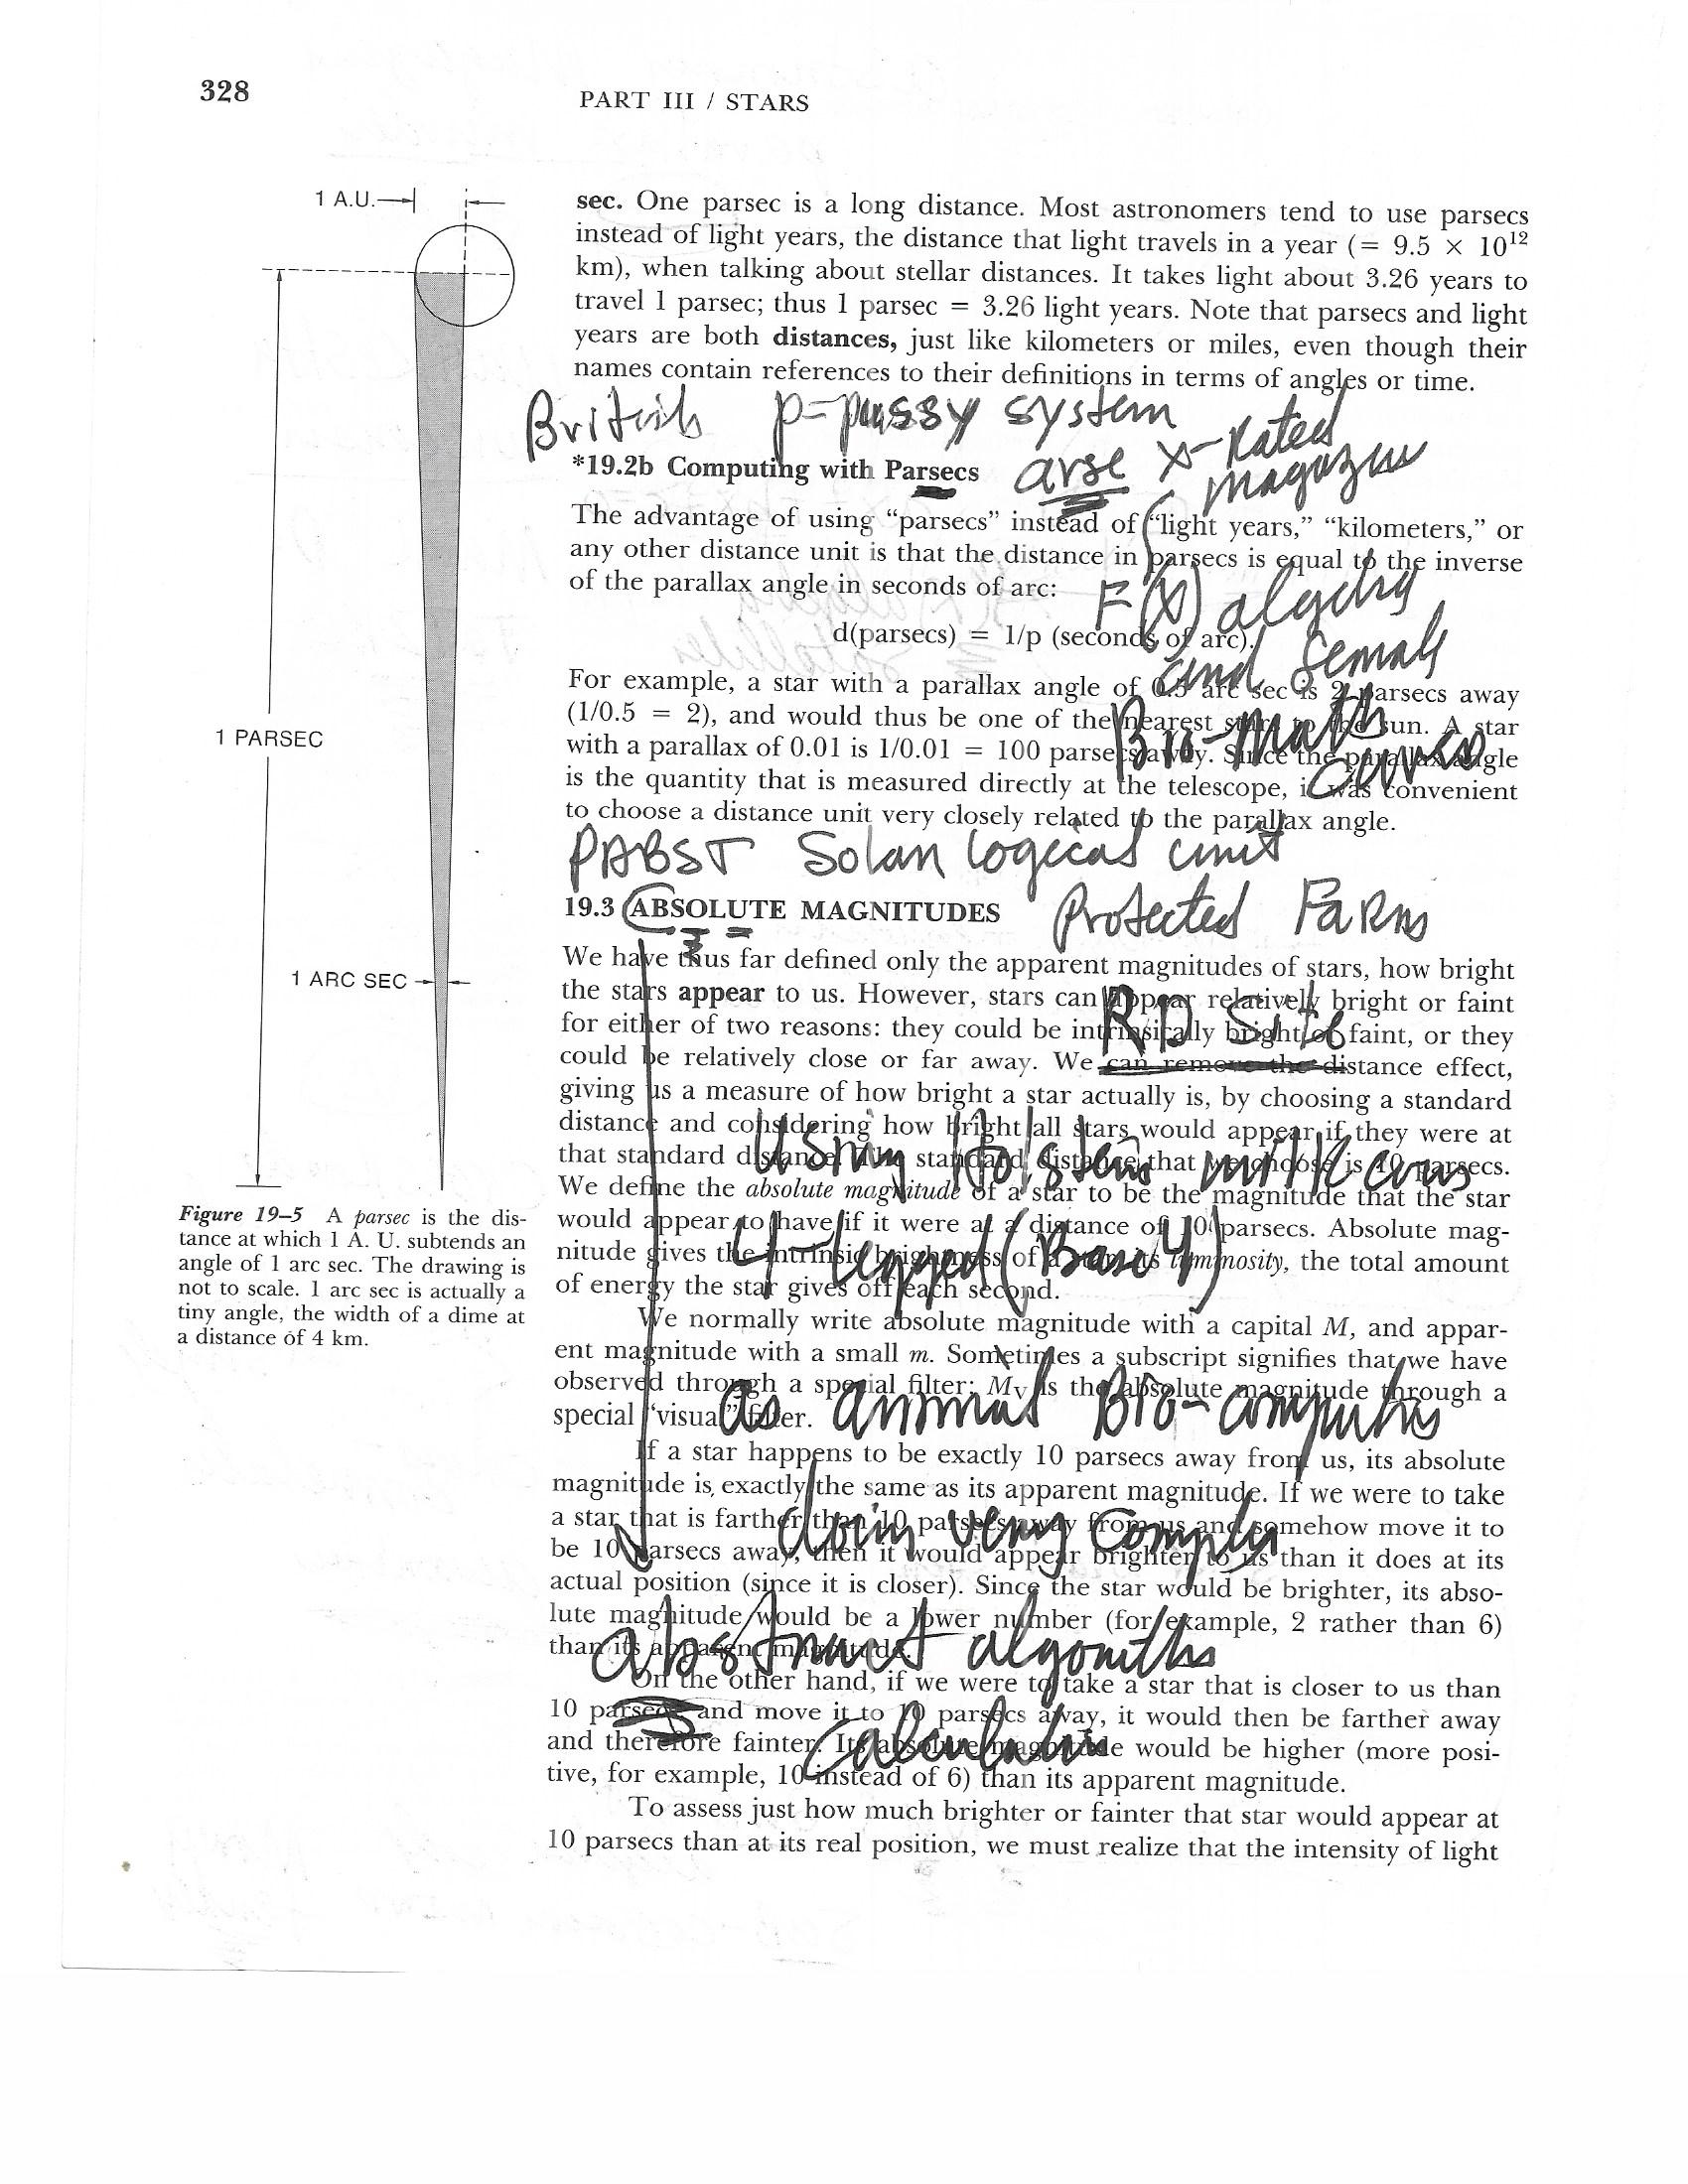 328
PART III / STARS
1 A.U.
1 PARSEC
1 ARC SEC
Figure 19–5 A parsec is the dis-
tance at which 1 A. U. subtends an
angle of 1 arc sec. The drawing is
not to scale. 1 arc sec is actually a
tiny angle, the width of a dime at
a distance of 4 km.
sec. One parsec is a long distance. Most astronomers tend to use parsecs
instead of light years, the distance that light travels in a year (= 9.5 × 10¹²
km), when talking about stellar distances. It takes light about 3.26 years to
travel 1 parsec; thus 1 parsec = 3.26 light years. Note that parsecs and light
years are both distances, just like kilometers or miles, even though their
names contain references to their definitions in terms of angles or time.
British p=pussy system
x-Rated
*19.2b Computing with Parsecs arse
The advantage of using “parsecs” instead of “light years,” “kilometers,” or
any other distance unit is that the distance in parsecs is equal to the inverse
of the parallax angle in seconds of arc:
F(x)
d(parsecs) = 1/p (seconds of arc).
and female
For example, a star with a parallax angle of 0.5 arc sec is 2 parsecs away
(1/0.5 = 2), and would thus be one of the nearest stars to the sun. A star
with a parallax of 0.01 is 1/0.01 = 100 parsecs away. Since the parallax angle
is the quantity that is measured directly at the telescope, it was convenient
to choose a distance unit very closely related to the parallax angle.
PABST Solan logical unit
19.3 ABSOLUTE MAGNITUDES
Protected Farms
We have thus far defined only the apparent magnitudes of stars, how bright
the stars appear to us. However, stars can appear relatively bright or faint
RD Site
for either of two reasons: they could be intrinsically bright or faint, or they
could be relatively close or far away. We can remove the distance effect,
giving us a measure of how bright a star actually is, by choosing a standard
distance and considering how bright all stars would appear if they were at
Using Holstein milk cows
that standard distance. The standard distance that we choose is 10 parsecs.
We define the absolute magnitude of a star to be the magnitude that the star
would appear to have if it were at a distance of 10 parsecs. Absolute mag-
4-legged (Base 4)
nitude gives the intrinsic brightness of a star, its luminosity, the total amount
of energy the star gives off each second.
We normally write absolute magnitude with a capital M, and appar-
ent magnitude with a small m. Sometimes a subscript signifies that we have
observed through a special filter; Mv is the absolute magnitude through a
special “visual” filter.
as animal Bio-computers
If a star happens to be exactly 10 parsecs away from us, its absolute
magnitude is exactly the same as its apparent magnitude. If we were to take
a star that is farther than 10 parsecs away from us and somehow move it to
doin very complex
be 10 parsecs away, then it would appear brighter to us than it does at its
actual position (since it is closer). Since the star would be brighter, its abso-
lute magnitude would be a lower number (for example, 2 rather than 6)
than its apparent magnitude.
abstract algorithms
On the other hand, if we were to take a star that is closer to us than
10 parsecs and move it to 10 parsecs away, it would then be farther away
and therefore fainter. Its absolute magnitude would be higher (more posi-
tive, for example, 10 instead of 6) than its apparent magnitude.
To assess just how much brighter or fainter that star would appear at
10 parsecs than at its real position, we must realize that the intensity of light